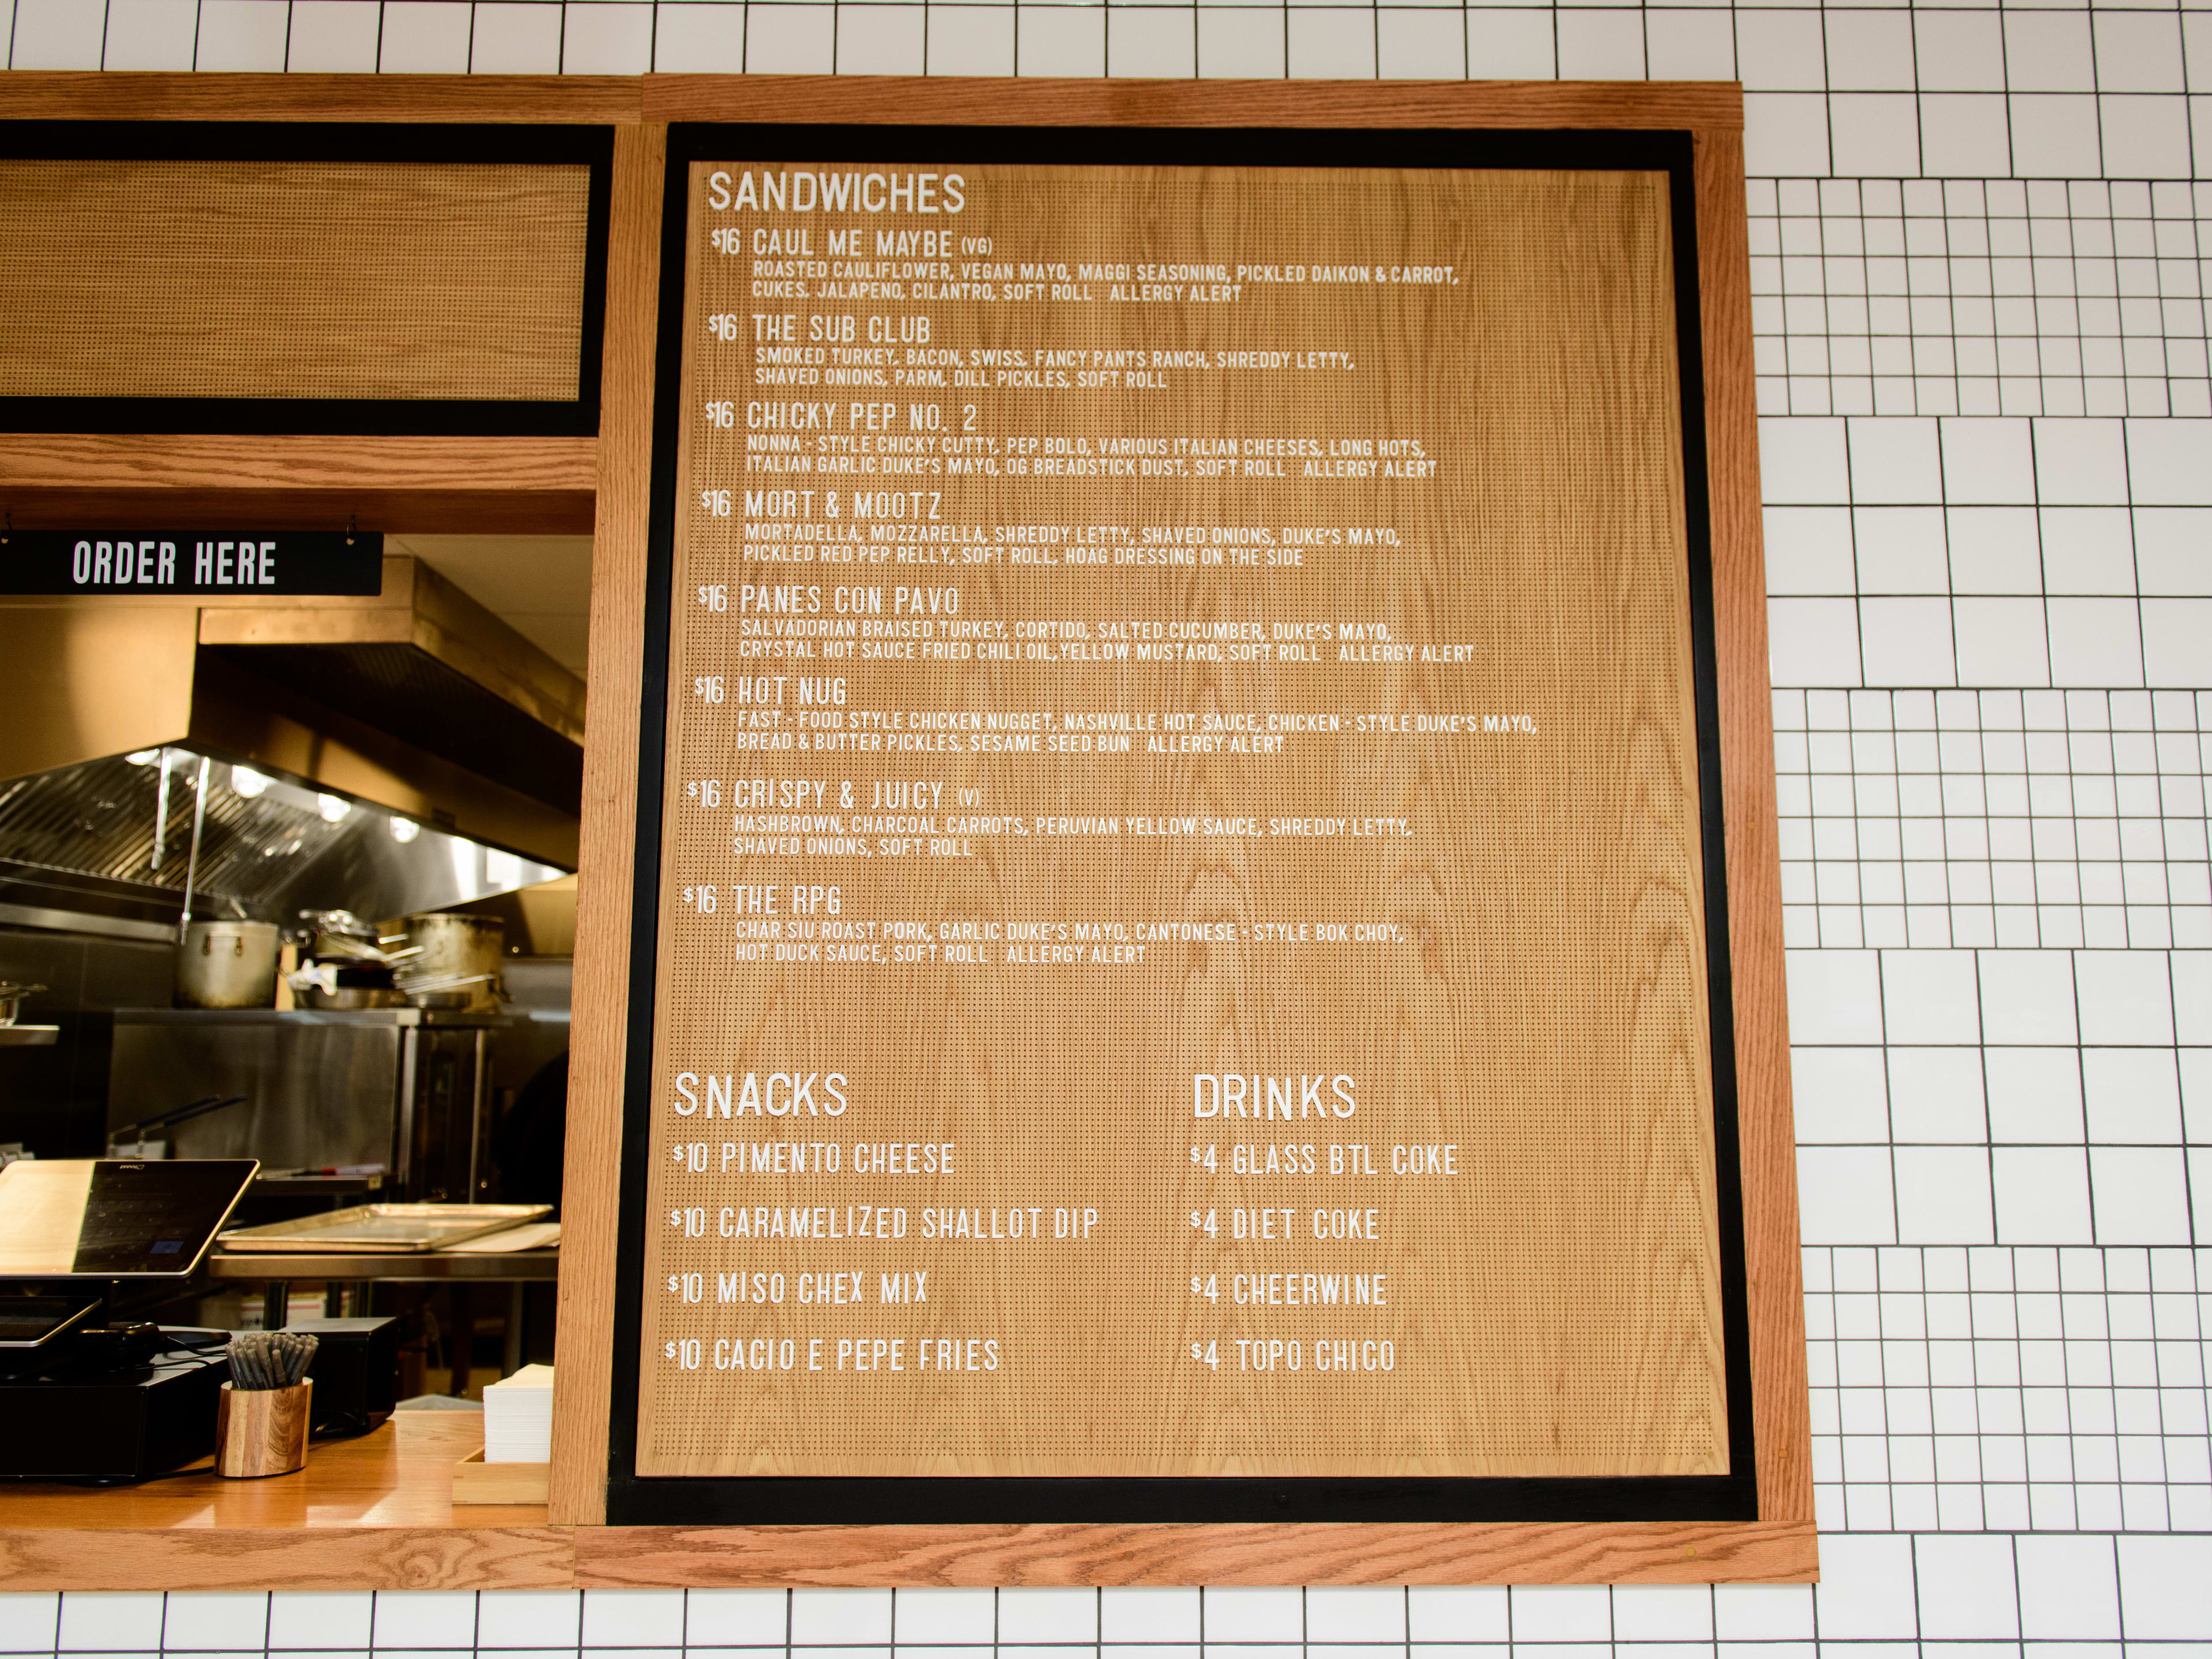 SANDWICHES
$16 CAUL ME MAYBE (VG)
ROASTED CAULIFLOWER, VEGAN MAYO, MAGGI SEASONING, PICKLED DAIKON & CARROT,
CUKES, JALAPENO, CILANTRO, SOFT ROLL ALLERGY ALERT
$16 THE SUB CLUB
SMOKED TURKEY, BACON, SWISS, FANCY PANTS RANCH, SHREDDY LETTY,
SHAVED ONIONS, PARM, DILL PICKLES, SOFT ROLL
$16 CHICKY PEP NO. 2
NONNA - STYLE CHICKY CUTTY, PEP BOLO, VARIOUS ITALIAN CHEESES, LONG HOTS,
ITALIAN GARLIC DUKE'S MAYO, OG BREADSTICK DUST, SOFT ROLL ALLERGY ALERT
$16 MORT & MOOTZ
MORTADELLA, MOZZARELLA, SHREDDY LETTY, SHAVED ONIONS, DUKE'S MAYO,
PICKLED RED PEP RELLY, SOFT ROLL, HOAG DRESSING ON THE SIDE
$16 PANES CON PAVO
SALVADORIAN BRAISED TURKEY, CORTIDO, SALTED CUCUMBER, DUKE'S MAYO,
CRYSTAL HOT SAUCE FRIED CHILI OIL, YELLOW MUSTARD, SOFT ROLL ALLERGY ALERT
$16 HOT NUG
FAST - FOOD STYLE CHICKEN NUGGET, NASHVILLE HOT SAUCE, CHICKEN - STYLE DUKE'S MAYO,
BREAD & BUTTER PICKLES, SESAME SEED BUN ALLERGY ALERT
$16 CRISPY & JUICY (V)
HASHBROWN, CHARCOAL CARROTS, PERUVIAN YELLOW SAUCE, SHREDDY LETTY,
SHAVED ONIONS, SOFT ROLL
$16 THE RPG
CHAR SIU ROAST PORK, GARLIC DUKE'S MAYO, CANTONESE - STYLE BOK CHOY,
HOT DUCK SAUCE, SOFT ROLL ALLERGY ALERT
SNACKS
$10 PIMENTO CHEESE
$10 CARAMELIZED SHALLOT DIP
$10 MISO CHEX MIX
$10 CACIO E PEPE FRIES
DRINKS
$4 GLASS BTL COKE
$4 DIET COKE
$4 CHEERWINE
$4 TOPO CHICO
ORDER HERE